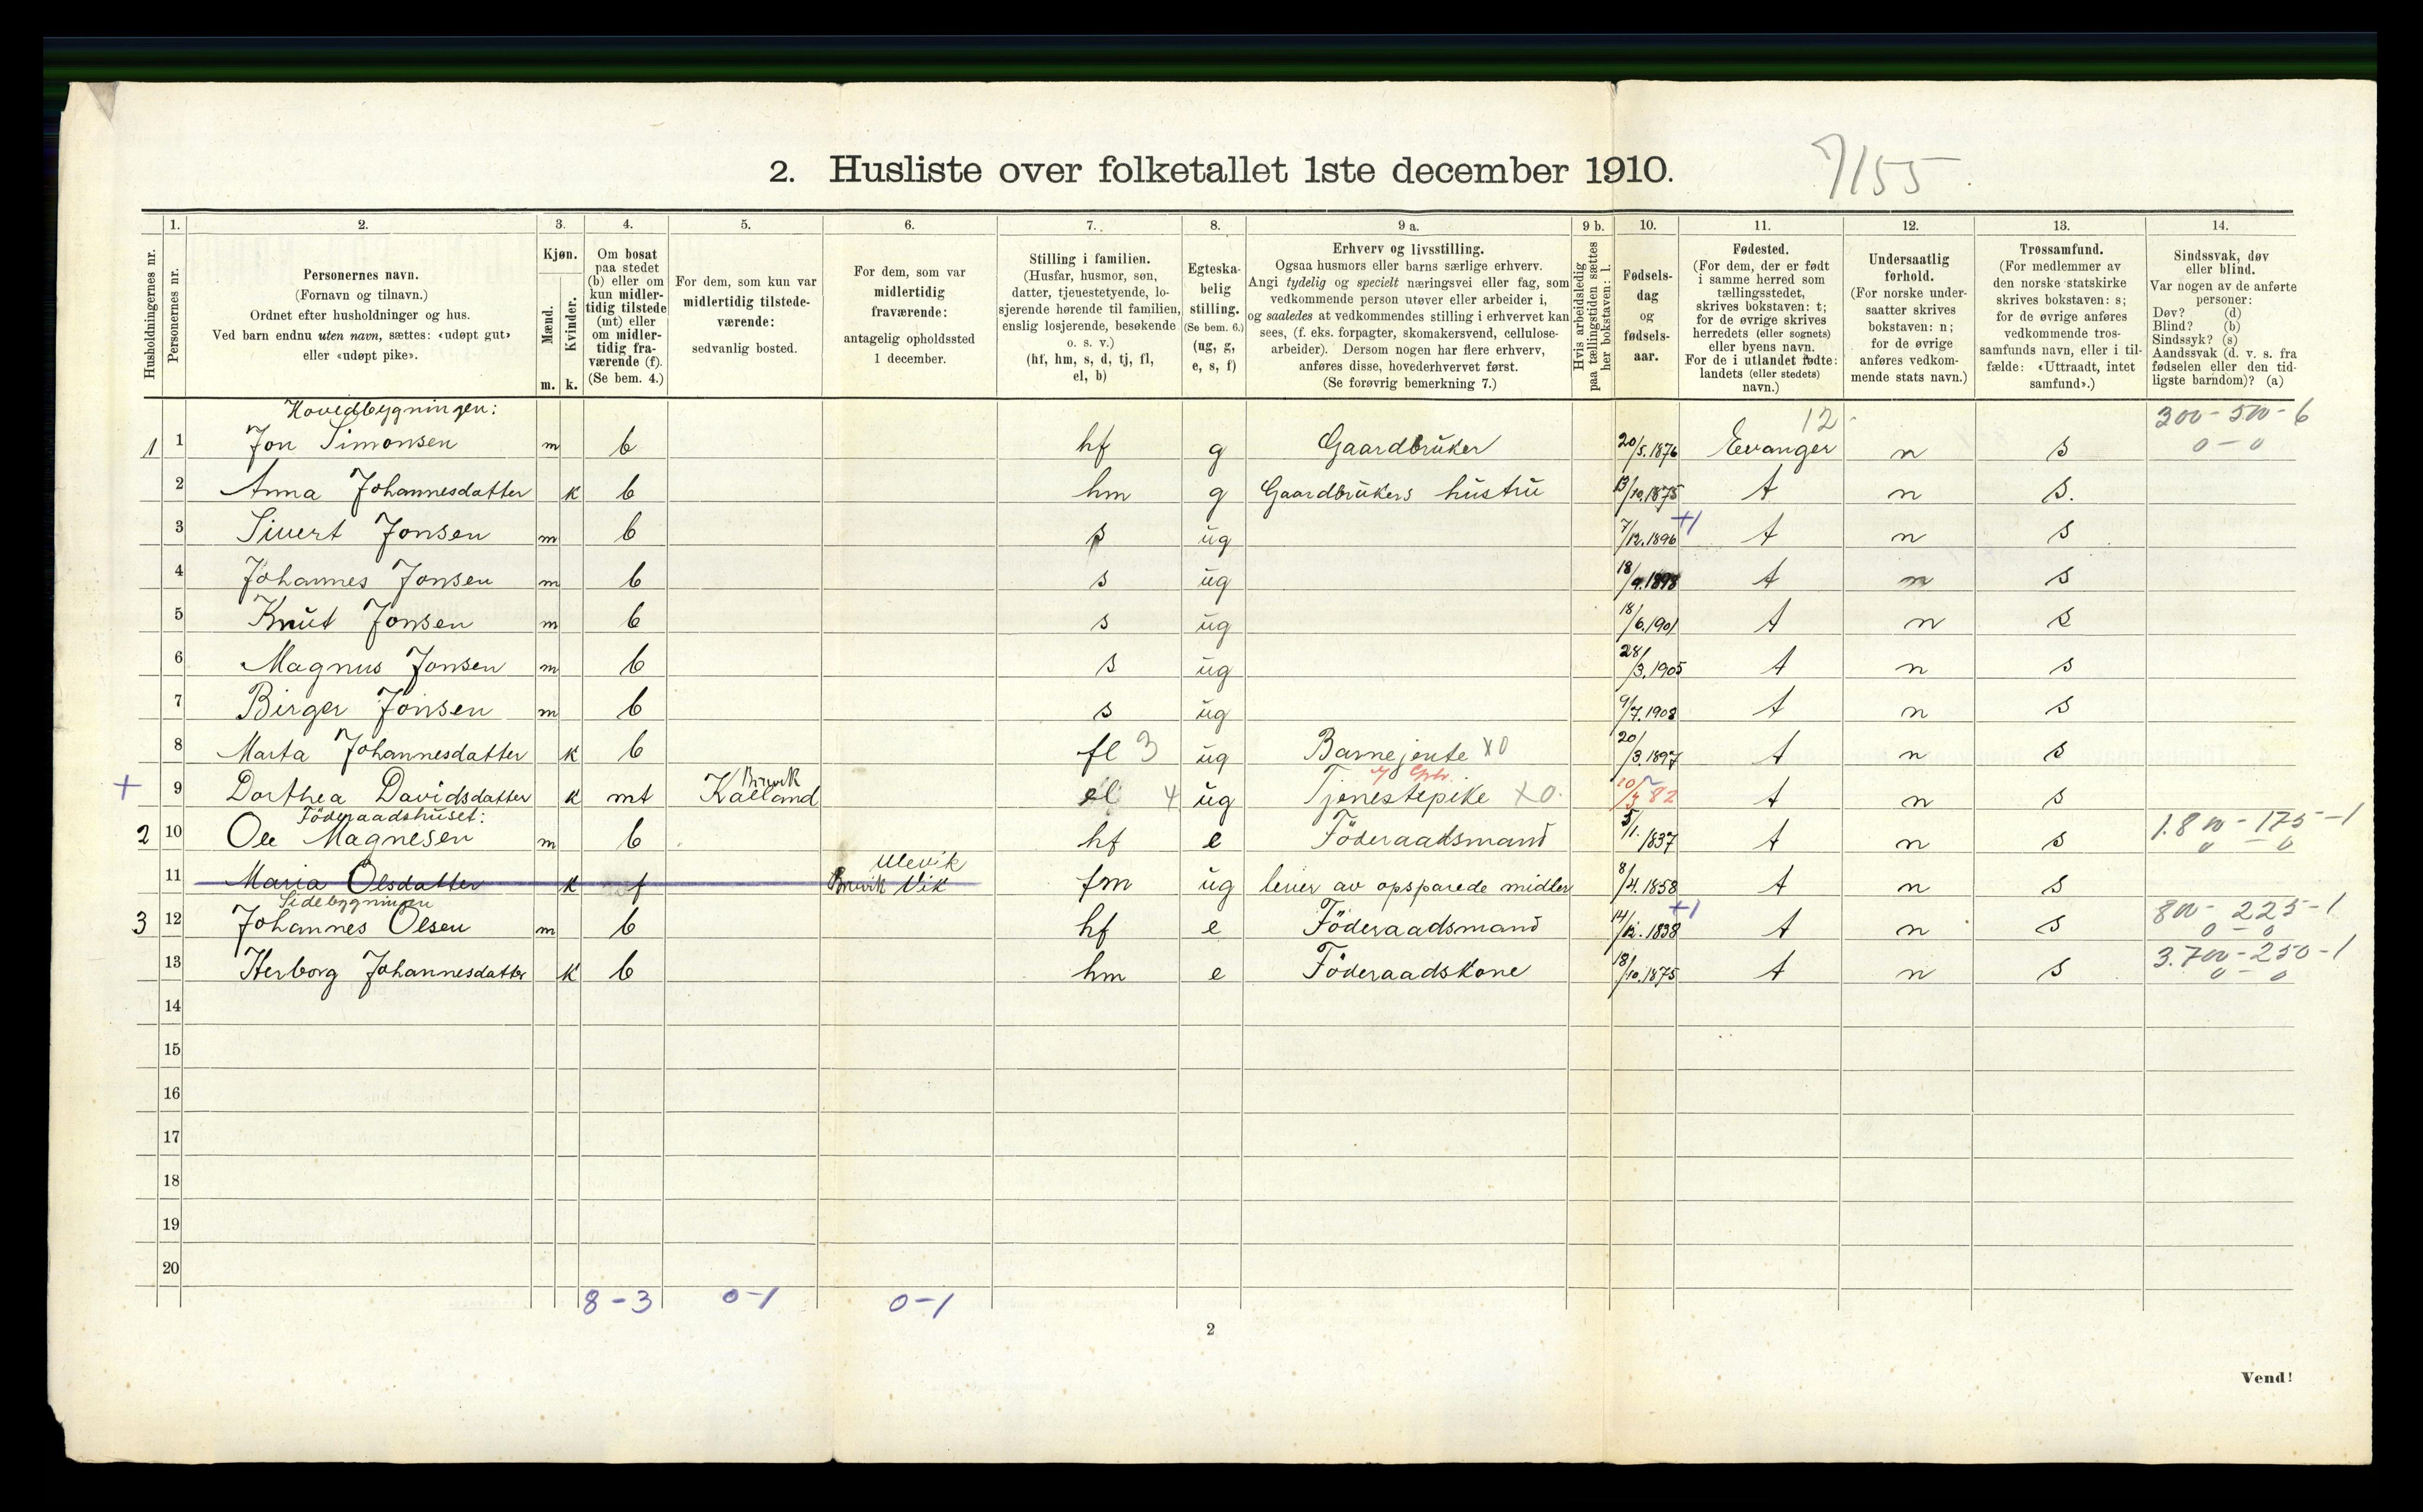 2. Husliste over folketallet 1ste december 1910.
7/155
1. 2. 3. 4. 5. 6. 7. 8. 9 a. 9 b. 10. 11. 12. 13. 14.
Husholdningernes nr.
Personernes nr.
Personernes navn.
(Fornavn og tilnavn.)
Ordnet efter husholdninger og hus.
Ved barn endnu uten navn, sættes: «udøpt gut»
eller «udøpt pike».
Kjøn.
Mænd.
Kvinder.
m. k.
Om bosat
paa stedet
(b) eller om
kun midler-
tidig tilstede
(mt) eller
om midler-
tidig fra-
værende (f).
(Se bem. 4.)
For dem, som kun var
midlertidig tilstede-
værende:
sedvanlig bosted.
For dem, som var
midlertidig
fraværende:
antagelig opholdssted
1 december.
Stilling i familien.
(Husfar, husmor, søn,
datter, tjenestetyende, lo-
sjerende hørende til familien,
enslig losjerende, besøkende
o. s. v.)
(hf, hm, s, d, tj, fl,
el, b)
Egteska-
belig
stilling.
(Se bem. 6.)
(ug, g,
e, s, f)
Erhverv og livsstilling.
Ogsaa husmors eller barns særlige erhverv.
Angi tydelig og specielt næringsvei eller fag, som
vedkommende person utøver eller arbeider i,
og saaledes at vedkommendes stilling i erhvervet kan
sees, (f. eks. forpagter, skomakersvend, cellulose-
arbeider). Dersom nogen har flere erhverv,
anføres disse, hovederhvervet først.
(Se forøvrig bemerkning 7.)
Hvis arbeidsledig
paa tællingstiden sættes
her bokstaven: l.
Fødsels-
dag
og
fødsels-
aar.
Fødested.
(For dem, der er født
i samme herred som
tællingsstedet,
skrives bokstaven: t;
for de øvrige skrives
herredets (eller sognets)
eller byens navn.
For de i utlandet fødte:
landets (eller stedets)
navn.)
Undersaatlig
forhold.
(For norske under-
saatter skrives
bokstaven: n;
for de øvrige
anføres vedkom-
mende stats navn.)
Trossamfund.
(For medlemmer av
den norske statskirke
skrives bokstaven: s;
for de øvrige anføres
vedkommende tros-
samfunds navn, eller i til-
fælde: «Uttraadt, intet
samfund».)
Sindssvak, døv
eller blind.
Var nogen av de anførte
personer:
Døv? (d)
Blind? (b)
Sindssyk? (s)
Aandssvak (d. v. s. fra
fødselen eller den tid-
ligste barndom)? (a)
Hovedbygningen: 12 300-500-6
1 1 Jon Simonsen m b hf g Gaardbruker 20/5.1876 Evanger n s 0-0
2 Anna Johannesdatter k b hm g Gaardbrukers hustru 13/10.1875 t n s.
3 Sivert Jonsen m b s ug 7/12.1896 +1 t n s
4 Johannes Jonsen m b s ug 18/9.1898 t n s
5 Knut Jonsen m b s ug 18/6.1901 t n s
6 Magnus Jonsen m b s ug 28/3.1905 t n s
7 Birger Jonsen m b s ug 9/7.1908 t n s
8 Marta Johannesdatter k b fl 3 ug Barnejente X0 20/3.1897 t n s
Bruvik
+ 9 Dorthea Davidsdatter k mt Kalland el 4 ug Tjenestepike X0. 82 t n s
Föderaadshuset: 1.800-175-1
2 10 Ole Magnesen m b hf e Föderaadsmand 5/1.1837 t n s 0-0
Ulevik
11 Maria Olsdatter k f Bruvik Vik fm ug lever av opsparede midler 8/4.1858 t n s
Sidebygningen 800-225-1
3 12 Johannes Olsen m b hf e Föderaadsmand 14/12.1838 +1 t n s 0-0
3.700-250-1
13 Herborg Johannesdatter k b hm e Föderaadskone 18/10.1875 t n s 0-0
14
15
16
17
18
19
20
8-3 0-1 0-1
2
Vend!